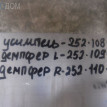 усилитель-252.108
демпфер L-252.109
демпфер R-252.110